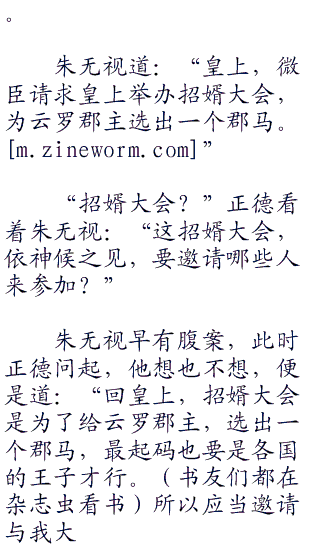 。
朱无视道：“皇上，微
臣请求皇上举办招婿大会，
为云罗郡主选出一个郡马。
[m.zineworm.com]”
“招婿大会？”正德看
着朱无视：“这招婿大会，
依神候之见，要邀请哪些人
来参加？”
朱无视早有腹案，此时
正德问起，他想也不想，便
是道：“回皇上，招婿大会
是为了给云罗郡主，选出一
个郡马，最起码也要是各国
的王子才行。（书友们都在
杂志虫看书）所以应当邀请
与我大